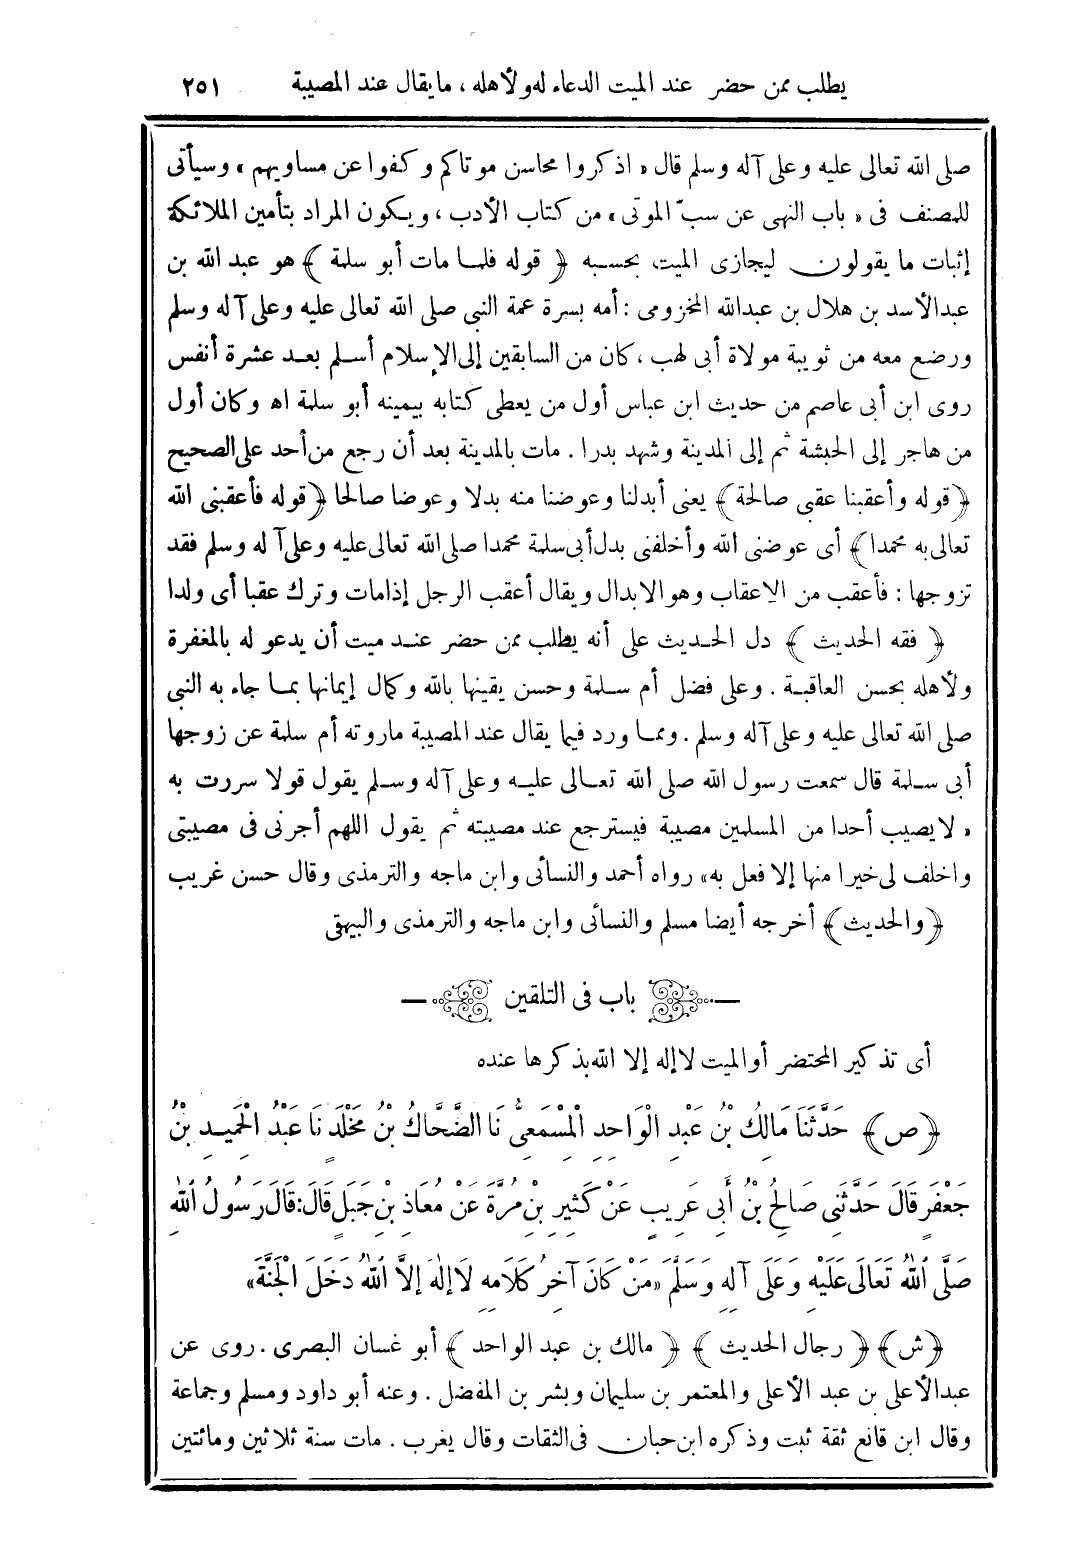 يطلب ممن حضر عند الميت الدعاء له ولأهله ، ما يقال عند المصيبة ٢٥١
صلى الله تعالى عليه وعلى آله وسلم قال « اذكروا محاسن موتاكم وكفوا عن مساويهم » وسيأتى
للمصنف فى « باب النهى عن سبّ الموتى » من كتاب الأدب ، ويكون المراد بتأمين الملائكة
إثبات ما يقولون ليجازى الميت بحسبه ﴿ قوله فلما مات أبو سلمة ﴾ هو عبد الله بن
عبد الأسد بن هلال بن عبد الله المخزومى : أمه بسرة عمة النبى صلى الله تعالى عليه وعلى آله وسلم
ورضع معه من ثويبة مولاة أبى لهب ، كان من السابقين إلى الإسلام أسلم بعد عشرة أنفس
روى ابن أبى عاصم من حديث ابن عباس أول من يعطى كتابه بيمينه أبو سلمة اه وكان أول
من هاجر إلى الحبشة ثم إلى المدينة وشهد بدرا . مات بالمدينة بعد أن رجع من أحد على الصحيح
﴿ قوله وأعقبنا عقبى صالحة ﴾ يعنى أبدلنا وعوضنا منه بدلا وعوضا صالحا ﴿ قوله فأعقبنى الله
تعالى به محمدا ﴾ أى عوضنى الله وأخلفنى بدل أبى سلمة محمدا صلى الله تعالى عليه وعلى آله وسلم فقد
تزوجها : فأعقب من الإعقاب وهو الابدال ويقال أعقب الرجل إذا مات وترك عقبا أى ولدا
﴿ فقه الحديث ﴾ دل الحديث على أنه يطلب ممن حضر عند ميت أن يدعو له بالمغفرة
ولأهله بحسن العاقبة . وعلى فضل أم سلمة وحسن يقينها بالله وكمال إيمانها بما جاء به النبى
صلى الله تعالى عليه وعلى آله وسلم . ومما ورد فيما يقال عند المصيبة ما روته أم سلمة عن زوجها
أبى سلمة قال سمعت رسول الله صلى الله تعالى عليه وعلى آله وسلم يقول قولا سررت به
« لا يصيب أحدا من المسلمين مصيبة فيسترجع عند مصيبته ثم يقول اللهم أجرنى فى مصيبتى
واخلف لى خيرا منها إلا فعل به » رواه أحمد والنسائى وابن ماجه والترمذى وقال حسن غريب
﴿ والحديث ﴾ أخرجه أيضا مسلم والنسائى وابن ماجه والترمذى والبيهقى
باب فى التلقين
أى تذكير المحتضر أو الميت لا إله إلا الله بذكرها عنده
﴿ ص ﴾ حَدَّثَنَا مَالِكُ بْنُ عَبْدِ الْوَاحِدِ الْمِسْمَعِىُّ نَا الضَّحَّاكُ بْنُ مَخْلَدٍ نَا عَبْدُ الْحَمِيدِ بْنُ
جَعْفَرٍ قَالَ حَدَّثَنِى صَالِحُ بْنُ أَبِى عَرِيبٍ عَنْ كَثِيرِ بْنِ مُرَّةَ عَنْ مُعَاذِ بْنِ جَبَلٍ قَالَ : قَالَ رَسُولُ اللهِ
صَلَّى اللهُ تَعَالَى عَلَيْهِ وَعَلَى آلِهِ وَسَلَّمَ « مَنْ كَانَ آخِرُ كَلَامِهِ لَا إِلٰهَ إِلَّا اللهُ دَخَلَ الْجَنَّةَ »
﴿ ش ﴾ ﴿ رجال الحديث ﴾ ﴿ مالك بن عبد الواحد ﴾ أبو غسان البصرى . روى عن
عبد الأعلى بن عبد الأعلى والمعتمر بن سليمان وبشر بن المفضل . وعنه أبو داود ومسلم وجماعة
وقال ابن قانع ثقة ثبت وذكره ابن حبان فى الثقات وقال يغرب . مات سنة ثلاثين ومائتين